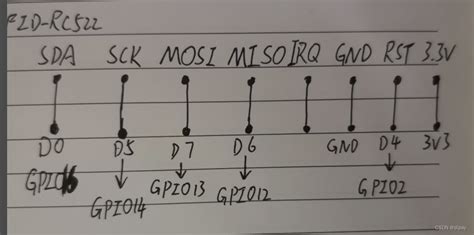 FID-RC522
SDA SCK MOSI MISO IRQ GND RST 3.3V
D0 D5 D7 D6 GND D4 3V3
GPIO16 GPIO14 GPIO13 GPIO12 GPIO2